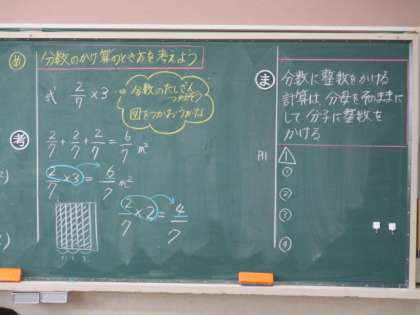 め
分数のかけ算のとき方を考えよう
式 2/7×3
分数のたしざん
つかって
図をつかおうかな
考
2/7+2/7+2/7=6/7 m²
2/7×3=6/7 m²
2/7×2=4/7
ま
分数に整数をかける
計算は分母をそのままに
して分子に整数を
かける
P11
1
①
②
③
④